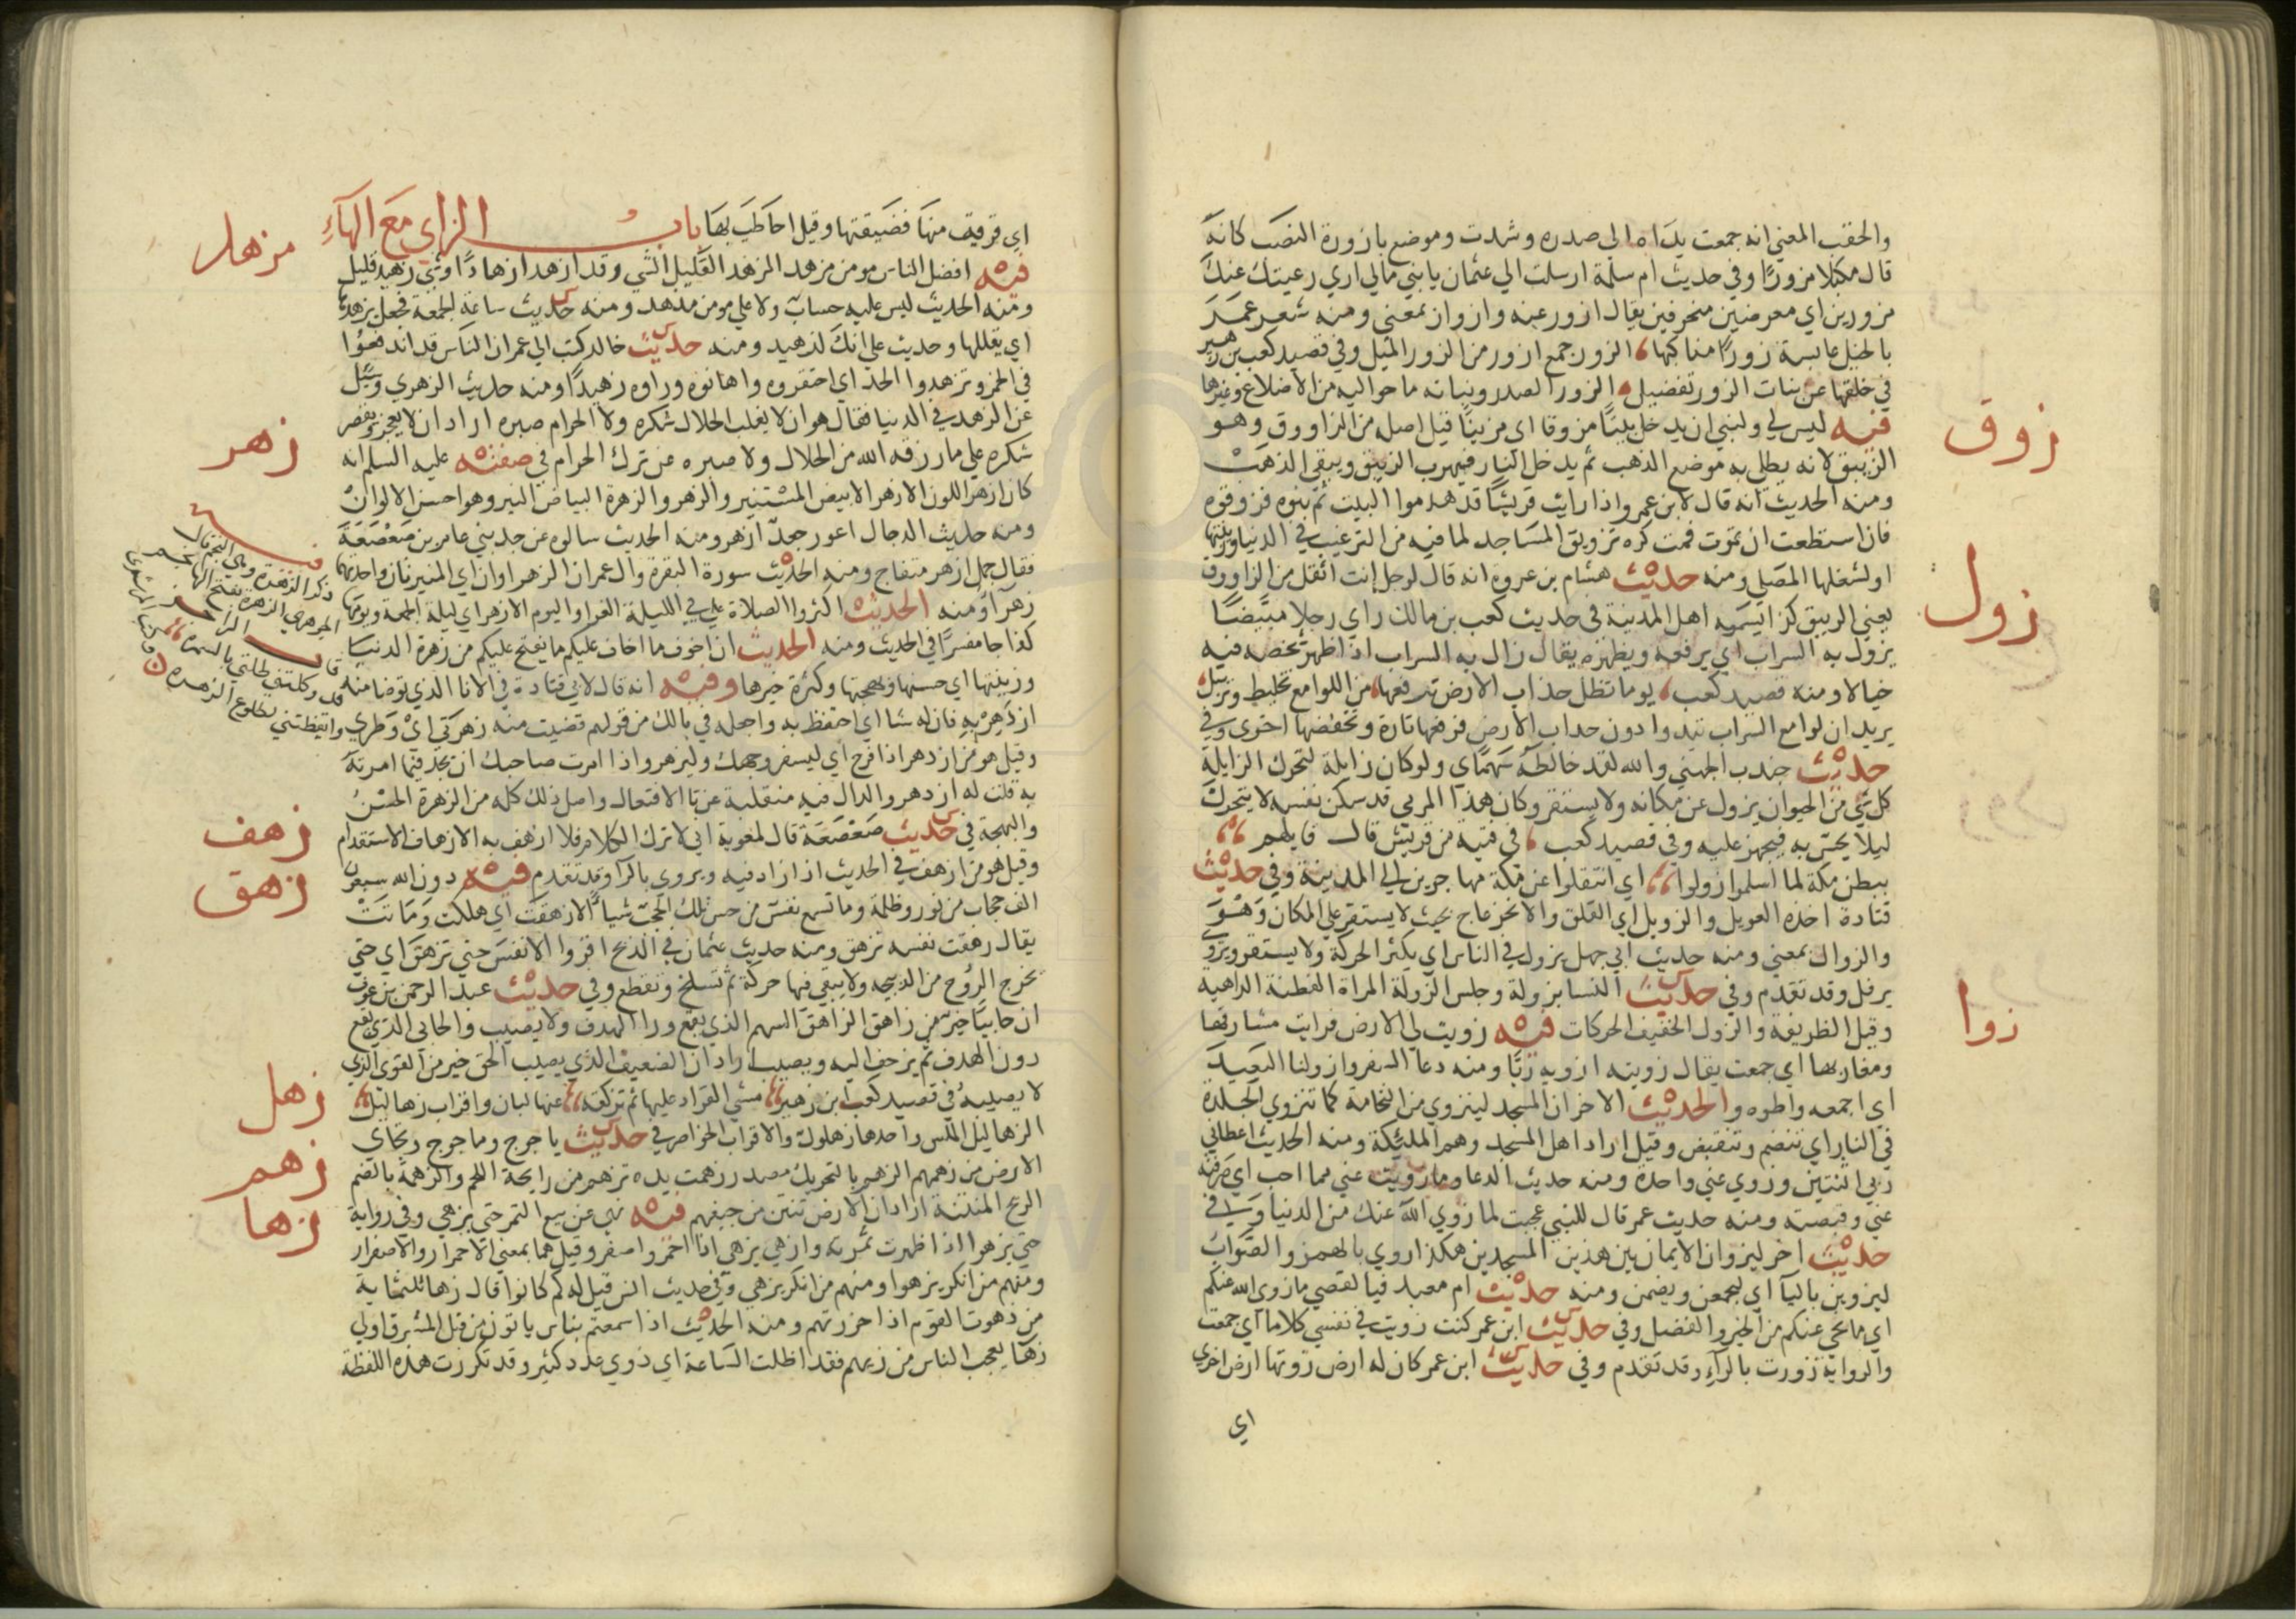 والحقب المعني انه جمعت يداه الي صدره وشدت وموضع بازورة النصب كانه
قال مكبلا مزورًا وفي حديث ام سلمة ارسلت الي عثمان يا بني مالي اري رعيتك عنك
مزورين اي معرضين منحرفين يقال ازور عنه وازوار بمعني ومنه شعر عمر
بالخيل عابسة زورًا مناكبها الزور جمع ازور من الزور الميل وفي قصيد كعب بن زهير
في خلقها عن بنات الزور تفضيل الزور الصدر وبناته ما حواليه من الاضلاع وغيرها
فيه ليس لي ولنبي ان يدخل بيتًا مزوقا اي مزينًا قيل اصله من الزاووق وهو
الزيبق لانه يطلي به موضع الذهب ثم يدخل النار فيهرب الزيبق ويبقي الذهب
ومنه الحديث انه قال لابن عمر واذا رايت قريشًا قد هدموا البيت ثم بنوه فزوقوه
فان استطعت ان تموت فمت كره تزويق المساجد لما فيه من الترغيب في الدنيا وزينتها
اولشغلها المصلي ومنه حديث هشام بن عروة انه قال لرجل انت اثقل من الزاووق
يعني الزيبق كذا تسميه اهل المدينة في حديث كعب بن مالك راي رجلا مبيضًا
يزول به السراب اي يرفعه ويظهره يقال زال به السراب اذا ظهر شخصه فيه
خيالا ومنه قصيد كعب يوما تظل حداب الارض ترفعها من اللوامع تخليط وتزييل
يريد ان لوامع السراب تبدوا دون حداب الارض فترفعها تارة وتخفضها اخري وفي
حديث جندب الجهني والله لقد خالطه سهماي ولو كان زايلة لتحرك الزايلة
كل شي من الحيوان يزول عن مكانه ولا يستقر وكان هذا المرمي قد سكن نفسه لا يتحرك
ليلا يحس به فيجهز عليه وفي قصيد كعب في فتية من قريش قال قايلهم
ببطن مكة لما اسلموا زولوا اي انتقلوا عن مكة مهاجرين الي المدينة وفي حديث
قتادة اخذه العويل والزويل اي القلق والانزعاج بحيث لا يستقر علي المكان وهو
والزوال بمعني ومنه حديث ابي جهل يزول في الناس اي يكثر الحركة ولا يستقر ويروي
يرفل وقد تقدم وفي حديث النسا بزولة وجلس الزولة المراة الفطنة الداهية
وقيل الظريفة والزول الخفيف الحركات فيه زويت لي الارض فرايت مشارقها
ومغاربها اي جمعت يقال زويته ازويه زيًا ومنه دعا السفر وازو لنا البعيد
اي اجمعه واطوه والحديث الاخر ان المسجد لينزوي من النخامة كما تنزوي الجلدة
في النار اي تنضم وتنقبض وقيل اراد اهل المسجد وهم المليكة ومنه الحديث اعطاني
ربي اثنتين وزوي عني واحدة ومنه حديث الدعا وما زويت عني مما احب اي صرفته
عني وقبضته ومنه حديث عمر قال للنبي عجبت لما زوي الله عنك من الدنيا وفي
حديث اخر ليزوان الايمان بين هذين المسجدين هكذا روي بالهمز والصواب
ليزوين باليا اي ليجمعن ويضمن ومنه حديث ام معبد فيا لقصي ما زوي الله عنكم
اي ما نحي عنكم من الخير والفضل وفي حديث ابن عمر كنت زويت في نفسي كلاما اي جمعت
والرواية زورت بالراء وقد تقدم وفي حديث ابن عمر كان له ارض زوتها ارض اخري
اي
زوق
زول
زوا
اي قربت منها فضيقتها وقيل احاطت بها باب الزاي مع الهاء
فيه افضل الناس مومن مزهد المزهد القليل الشي وقد ازهد ازهادًا وشي زهيد قليل
ومنه الحديث ليس عليه حساب ولا علي مومن مزهد ومنه حديث ساعة الجمعة فجعل يزهدها
اي يقللها وحديث علي انك لزهيد ومنه حديث خالد كتب الي عمر ان الناس قد اندفعوا
في الخمر وتزهدوا الحد اي احتقروه واهانوه وراوه زهيدًا ومنه حديث الزهري وسيل
عن الزهد في الدنيا فقال هو ان لا يغلب الحلال شكره ولا الحرام صبره اراد ان لا يعجز ويقصر
شكره علي ما رزقه الله من الحلال ولا صبره عن ترك الحرام في صفته عليه السلم انه
كان ازهر اللون الازهر الابيض المستنير والزهر والزهرة البياض النير وهو احسن الالوان
ومنه حديث الدجال اعور جعد ازهر ومنه الحديث سالوه عن جد بني عامر بن صعصعة
فقال جمل ازهر متفاج ومنه الحديث سورة البقرة وال عمران الزهراوان اي المنيرتان واحدتهما
زهرا ومنه الحديث اكثروا الصلاة علي في الليلة الغرا واليوم الازهر اي ليلة الجمعة ويومها
كذا جا مفسرًا في الحديث ومنه الحديث ان اخوف ما اخاف عليكم ما يفتح عليكم من زهرة الدنيا
وزينتها اي حسنها وبهجتها وكثرة خيرها وفيه انه قال لابي قتادة في الانا الذي توضا منه
ازدهر به فان له شانا اي احتفظ به واجعله في بالك من قولهم قضيت منه زهرتي اي وطري
وقيل هو من ازدهر اذا فرح اي ليسفر وجهك وليزهر واذا امرت صاحبك ان يجد فيما امرته
به قلت له ازدهر والدال فيه منقلبة عن تا الافتعال واصل ذلك كله من الزهرة الحسن
والبهجة في حديث صعصعة قال لمعوية اني لا ترك الكلام فلا ازهف به الازهاف الاستقدام
وقيل هو من ازهف في الحديث اذا زاد فيه ويروي بالرا وقد تقدم فيه دون الله سبعون
الف حجاب من نور وظلمة وما تسمع نفس من حس تلك الحجب شيا الا زهقت اي هلكت وماتت
يقال زهقت نفسه تزهق ومنه حديث عثمان في الذبح اقروا الانفس حتي تزهق اي حتي
تخرج الروح من الذبيحه ولا يبقي فيها حركة ثم تسلخ وتقطع وفي حديث عبد الرحمن بن عوف
ان حابيًا خير من زاهق الزاهق السهم الذي يقع ورا الهدف ولا يصيب والحابي الذي يقع
دون الهدف ثم يزحف اليه ويصيب اراد ان الضعيف الذي يصيب الحق خير من القوي الذي
لا يصيبه في قصيد كعب ابن زهير مشي القراد عليها ثم تزلقه عنها لبان واقراب زهاليل
الزهاليل الملس واحدها زهلول والاقراب الخواصر في حديث ياجوج وماجوج وتجاي
الارض من زهمهم الزهم بالتحريك مصدر زهمت يده تزهم من رايحة اللحم والزهمة بالضم
الريح المنتنة اراد ان الارض تنتن من جيفهم فيه نهي عن بيع الثمر حتي يزهي وفي رواية
حتي يزهوا اذا ظهرت ثمرته وازهي يزهي اذا احمر واصفر وقيل هما بمعني الاحمرار والاصفرار
ومنهم من انكر يزهوا ومنهم من انكر يزهي وفي حديث انس قيل له كم كانوا قال زها ثلثماية
من زهوت القوم اذا حزرتهم ومنه الحديث اذا سمعتم بناس ياتون من قبل المشرق اولي
زها يعجب الناس من زيهم فقد اظلت الساعة اي ذوي عدد كثير وقد تكررت هذه اللفظة
زهد
زهر
زهف
زهق
زهل
زهم
زها
فيه
ذكر الزهرة وهي النجم قال
الجوهري الزهرة بفتح الها نجم
قال الراجز
وكلتني طلتي بالسمسرة
وايقظتني لطلوع الزهره